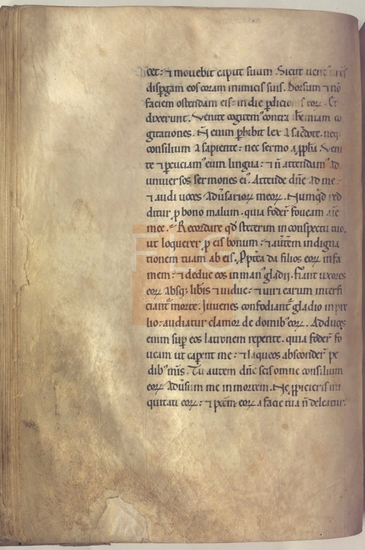 cet: ⁊ mouebit caput suum. Sicut uent
disꝑgam eos coram inimicis suis. Dorsum ⁊ nō
faciem ostendam eis: in die ꝑdicionis eoꝝ. Et
dixerunt. Venite cogitemꝰ contra iheremiam co
gitationes. N̄ enim ꝑibit lex a sac̄dote. neqꝫ
consilium a sapiente: nec sermo a ꝓph̄a. Veni
te ⁊ ꝑcuciamꝰ eum lingua: ⁊ n̄ attendamꝰ ad
uniuersos sermones eiꝰ. Attende dn̄e ad me:
⁊ audi uoces adūsarioꝝ meoꝝ. Numqͥd red
ditur ꝓ bono malum. quia foder̄t foueam aīe
mee. Recordare qd̄ steterim in conspectu tuo.
ut loquerer ꝓ eis bonum: ⁊ aut̄em indigna
tionem tuam ab eis. Ꝓpt̄a da filios eoꝝ in fa
mem: ⁊ deduc eos in manꝰ gladii. Fiant uxores
eoꝝ absqꝫ lib̄is ⁊ uidue: ⁊ uiri earum interfi
ciant̄ morte. Iuuenes confodiant̄ gladio in p̄e
lio: audiatur clamor de domibꝰ eoꝝ. Adduces
enim suꝑ eos latronem repente. quia foder̄t fo
ueam ut caperent me: ⁊ laqueos absconder̄t pe
dibꝰ meis. Tu autem dn̄e scis omne consilium
eoꝝ adūsum me in mortem. Ne ꝓpicieris in
quitati eoꝝ: ⁊ pecc̄m eoꝝ a facie tua n̄ deleatur.